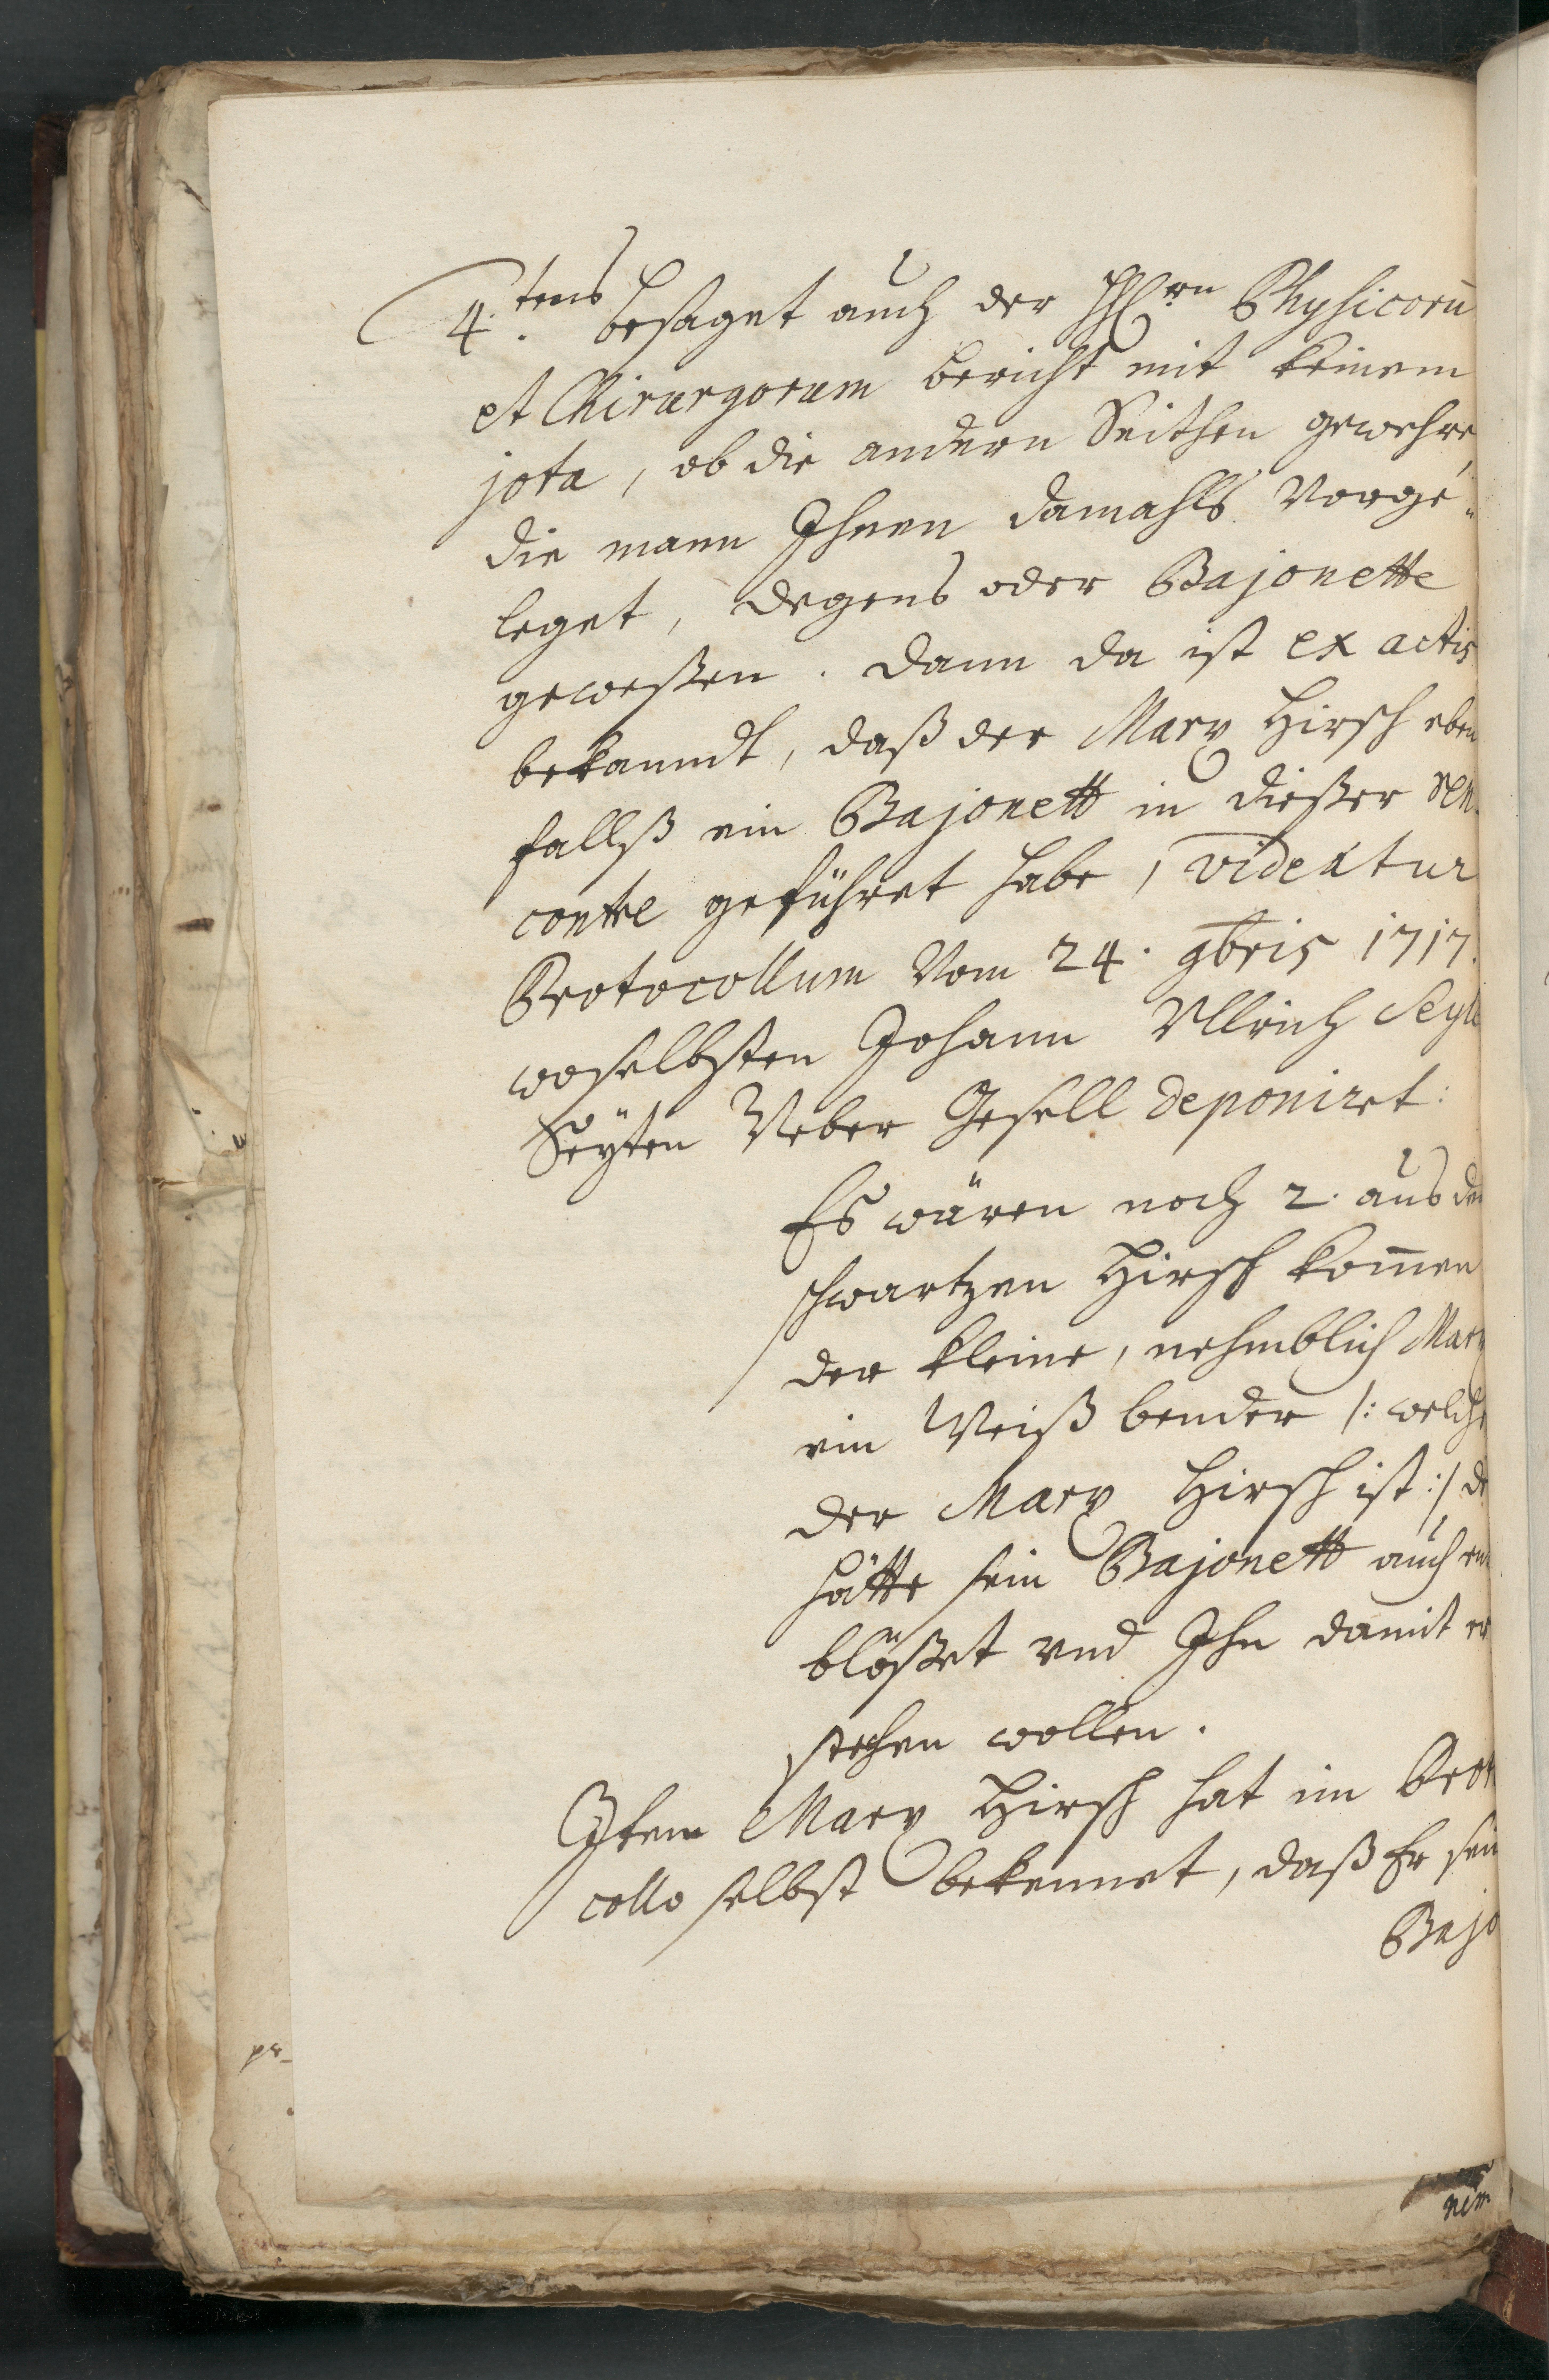 4.tens besaget auch der HH.rn Physicorũ
et Chirurgorum bericht mit keinem
jota, ob die andern Seithen gewehre,
die mann Ihnen damahls vorge„
leget, degens oder Bajonette
geweßen. dann da ist ex actis
bekanndt, daß der Marx Hirsch eben
fallß ein Bajonett in dießer ren
contre geführet habe, videatur
Protocollum vom 24. 9bris 1717.
woselbsten Johann Ullrich
Weber Gesell deponiret:
Es wären noch 2. aus de
schwartzen Hirsch kom̄en
der kleine, nehmblich Marx
ein Weiß bender /: welche
der Marx Hirsch ist :/ de
hätte sein Bajonett auch en
blößet und Ihn damit er
stechen wollen.
Item Marx Hirsch hat im Prot
collo selbst bekennet, daß Er sein
Bajo
pr
nem